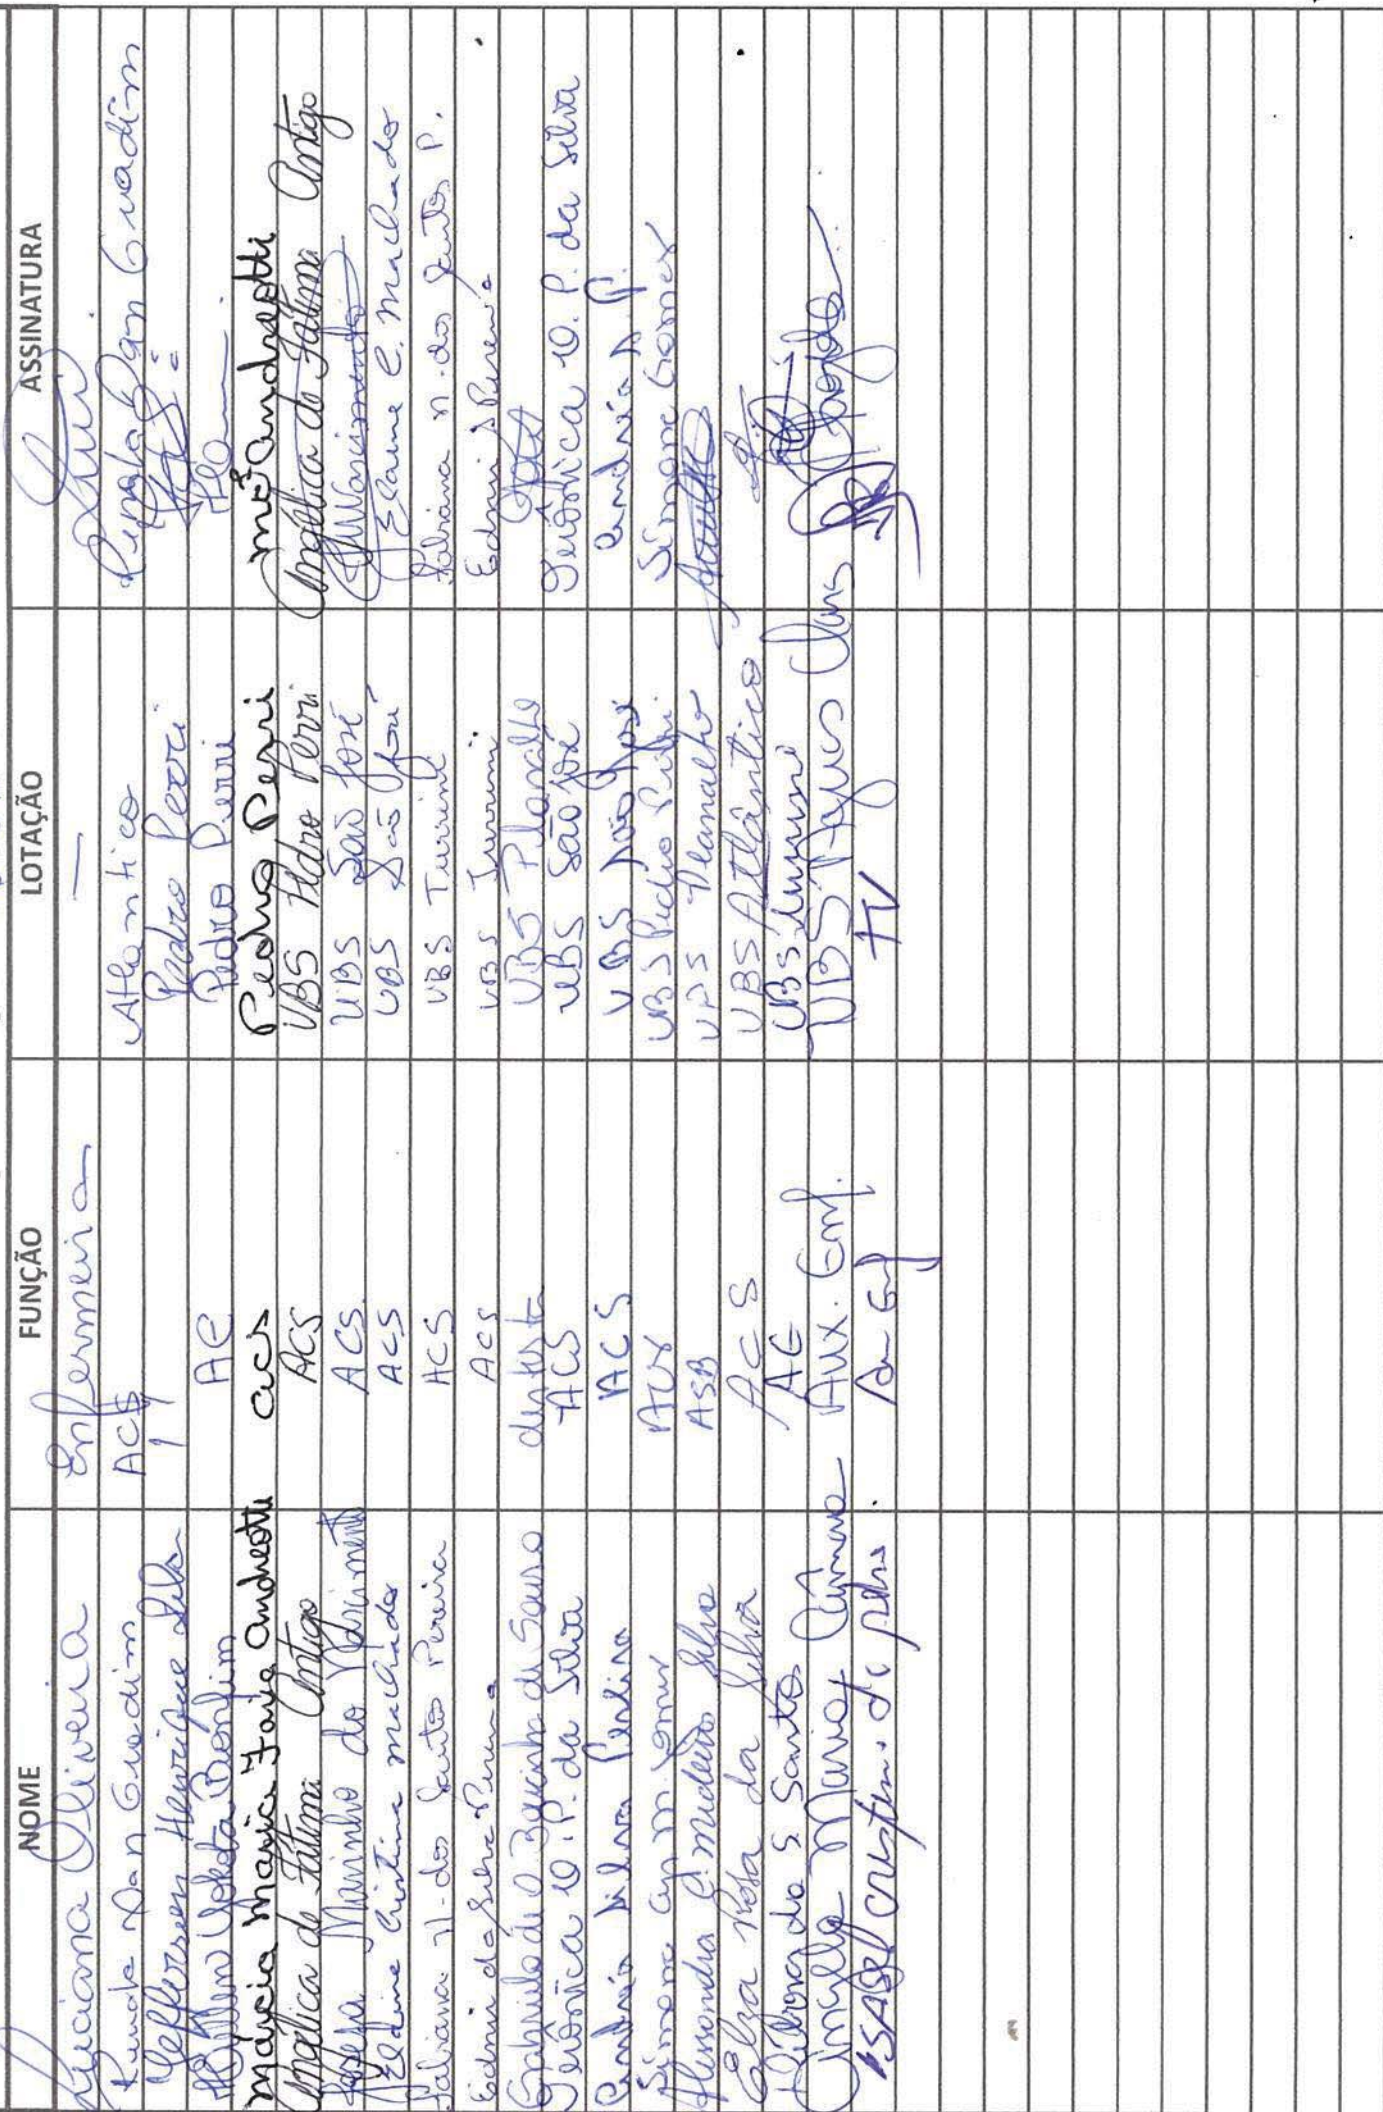 NOME FUNÇÃO LOTAÇÃO ASSINATURA
Luciana Oliveira Enfermeira —
Renata Dan Guedim ACS Atlantico Renata Dan Guadim
Jefferson Henrique Silva Pedro Perri
Bonfim AC Pedro Perri
Márcia Maria Faria Andreotti acs Pedro Perri Mª Andreotti
Angélica de Fátima Antigo ACS UBS Pedro Perri Angélica de Fátima Antigo
Marinho do Nascimento ACS. UBS São José Nascimento
Elaine Cristina Machado ACS UBS São José Elaine C. Machado
Fabiana N. dos Santos Pereira ACS UBS Turrini Fabiana N. dos Santos P.
Edni da Silva Pereira ACS UBS Turrini Edni S Pereira
Gabriela de O dentista UBS Planalto
Verônica O. P. da Silva ACS UBS São José Verônica O. P. da Silva
Silva Pereira ACS UBS São José
Simone Ap. M. Gomes UBS Pedro Perri. Simone Gomes
Alessandra C. Medeiros Silva ASB UBS Planalto
Elza Rosa da Silva ACS UBS Atlântico
Débora da S Santos AG UBS Turrini
Angela Maria Aux. Enf. UBS Aguas Claras
Isabel Cristina de TV